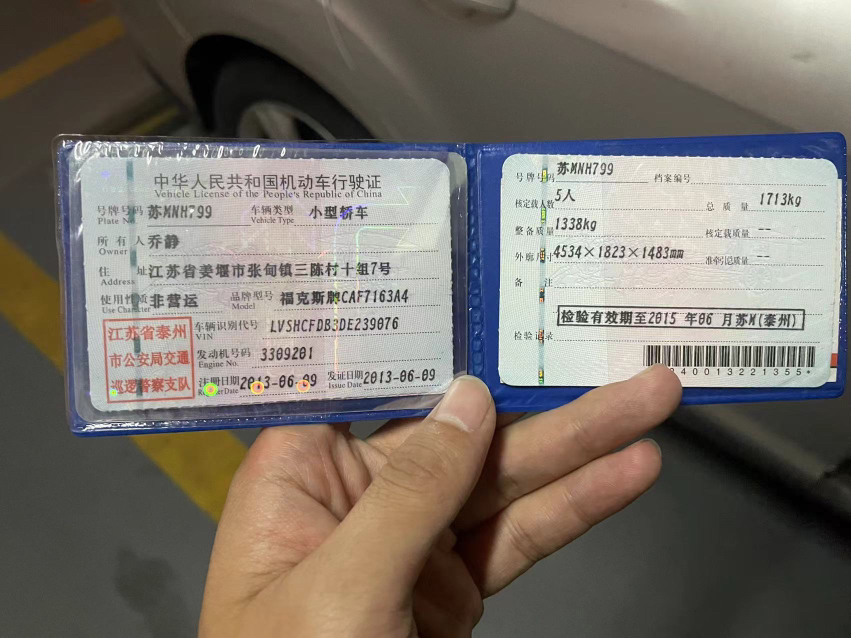 中华人民共和国机动车行驶证
Vehicle License of the People's Republic of China
号牌号码 苏MNH799 车辆类型 小型轿车
Plate No. Vehicle Type
所有人 乔静
Owner
住址 江苏省姜堰市张甸镇三陈村十组7号
Address
使用性质 非营运 品牌型号 福克斯牌CAF7163A4
Use Character Model
江苏省泰州
市公安局交通
巡逻警察支队
车辆识别代号 LVSHCFDB3DE239076
VIN
发动机号码 3309201
Engine No.
注册日期 2013-06-09 发证日期 2013-06-09
Register Date Issue Date
号牌号码 苏MNH799 档案编号
核定载人数 5人 总质量 1713kg
整备质量 1338kg 核定载质量 --
外廓尺寸 4534×1823×1483mm 准牵引总质量 --
备注
检验有效期至2015 年06 月苏M(泰州)
检验记录
40013221355*